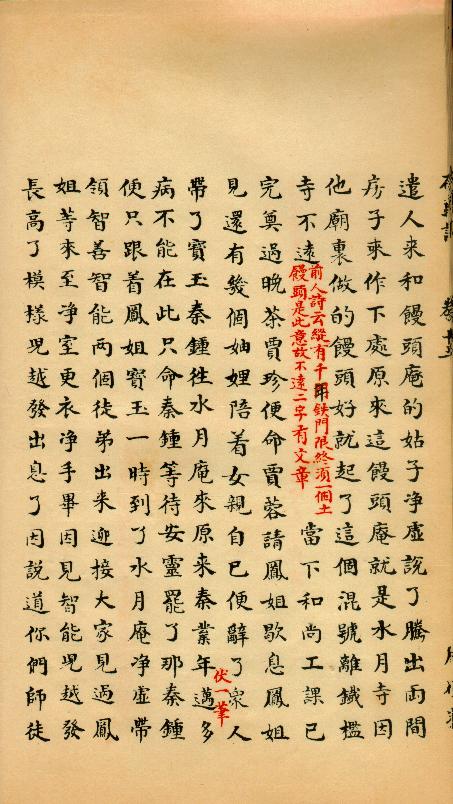 遣人来和饅頭庵的姑子净虚說了騰出両間
房子来作下處原来這饅頭庵就是水月寺因
他廟裏做的饅頭好就起了這個混號離鐵檻
寺不遠
前人詩云縱有千年鉄門限終須一個土
饅頭是此意故不遠二字有文章
當下和尚工課已
完奠過晚茶賈珍便命賈蓉請鳳姐歇息鳳姐
見還有幾個妯娌陪着女親自已便辭了衆人
帶了寳玉秦鍾徃水月庵來原来秦業年邁多
伏一筆
病不能在此只命秦鍾等待安靈罷了那秦鍾
便只跟着鳳姐寳玉一時到了水月庵净虚帶
領智善智能両個徒弟出来迎接大家見過鳳
姐等来至净室更衣净手畢因見智能児越發
長高了模樣児越發出息了因說道你們師徒